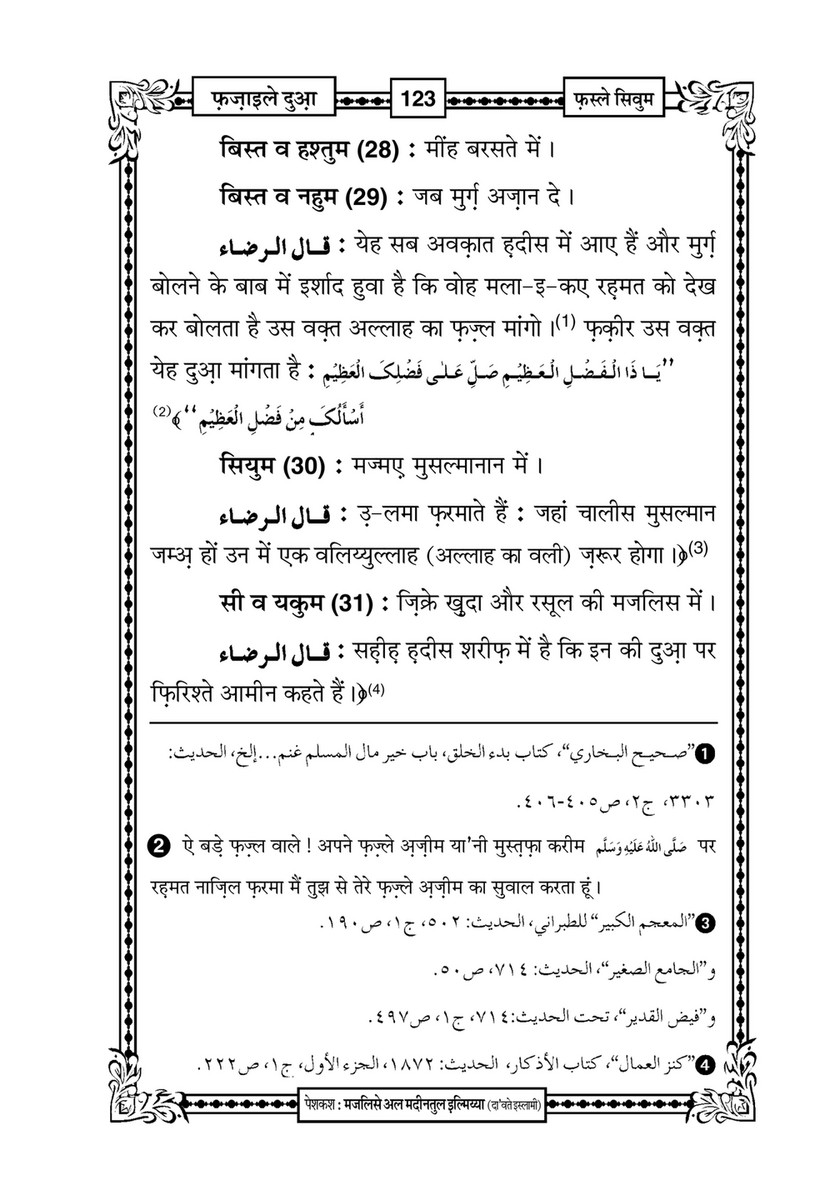 फ़ज़ाइले दुआ़
123
फ़स्ले सिवुम
बिस्त व हश्तुम (28) : मींह बरसते में ।
बिस्त व नहुम (29) : जब मुर्ग़ अज़ान दे ।
قال الرضاء : येह सब अवक़ात ह़दीस में आए हैं और मुर्ग़
बोलने के बाब में इर्शाद हुवा है कि वोह मला-इ-कए रह़मत को देख
कर बोलता है उस वक़्त अल्लाह का फ़ज़्ल मांगो ।(1) फ़क़ीर उस वक़्त
येह दुआ़ मांगता है : ”يَا ذَا الْفَضْلِ الْعَظِيْمِ صَلِّ عَلٰى فَضْلِکَ الْعَظِيْمِ
أَسْأَلُکَ مِنْ فَضْلِ الْعَظِيْمِ“﴾(2)
सियुम (30) : मज्मए मुसल्मानान में ।
قال الرضاء : उ़-लमा फ़रमाते हैं : जहां चालीस मुसल्मान
जम्अ़ हों उन में एक वलिय्युल्लाह (अल्लाह का वली) ज़रूर होगा ।﴾(3)
सी व यकुम (31) : ज़िक्रे ख़ुदा और रसूल की मजलिस में ।
قال الرضاء : सह़ीह़ ह़दीस शरीफ़ में है कि इन की दुआ़ पर
फ़िरिश्ते आमीन कहते हैं ।﴾(4)
❶”صحيح البخاري“، كتاب بدء الخلق، باب خير مال المسلم غنم...إلخ، الحديث:
٣٣٠٣، ج٢، ص٤٠٥-٤٠٦.
❷ ऐ बड़े फ़ज़्ल वाले ! अपने फ़ज़्ले अ़ज़ीम या'नी मुस्त़फ़ा करीम صَلَّى اللهُ عَلَيْهِ وَسَلَّم पर
रह़मत नाज़िल फ़रमा मैं तुझ से तेरे फ़ज़्ले अ़ज़ीम का सुवाल करता हूं ।
❸”المعجم الكبير“ للطبراني، الحديث: ٥٠٢، ج١، ص١٩٠.
و”الجامع الصغير“، الحديث: ٧١٤، ص٥٠.
و”فيض القدير“، تحت الحديث:٧١٤، ج١، ص٤٩٧.
❹”كنز العمال“، كتاب الأذكار، الحديث: ١٨٧٢، الجزء الأول، ج١، ص٢٢٢.
पेशकश : मजलिसे अल मदीनतुल इ़ल्मिय्या (दा'वते इस्लामी)